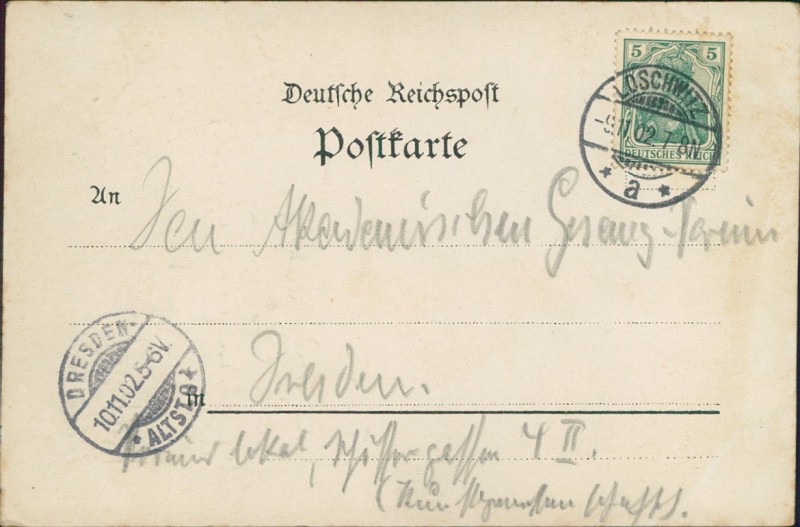 Deutsche Reichspost
Postkarte
5 5
DEUTSCHES REICH
LOSCHWITZ
-9.11.02.7-8N.
* a *
An
Den Akademischen Gesang-Verein
DRESDEN-
10.11.02.5-6V.
* ALTST.
in
Dresden.
Vereinslokal, Schössergasse 4 II.
(Kunstgenossenschaft).